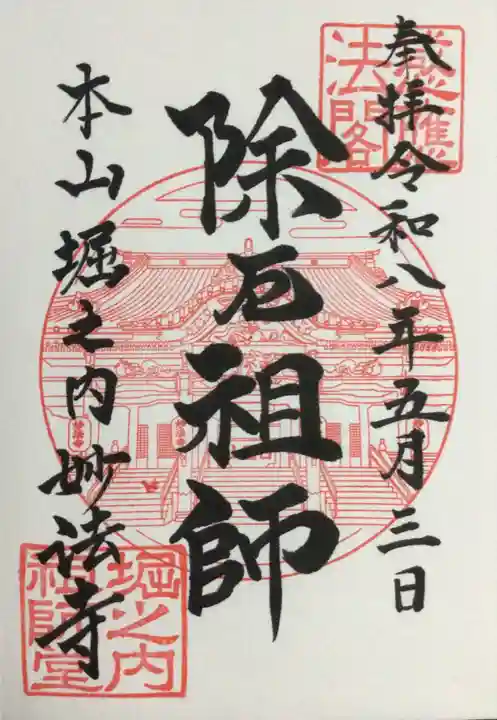 奉拝令和八年五月三日
感應
法閣
除厄祖師
本山堀之内妙法寺
堀之内
祖師堂
妙法寺